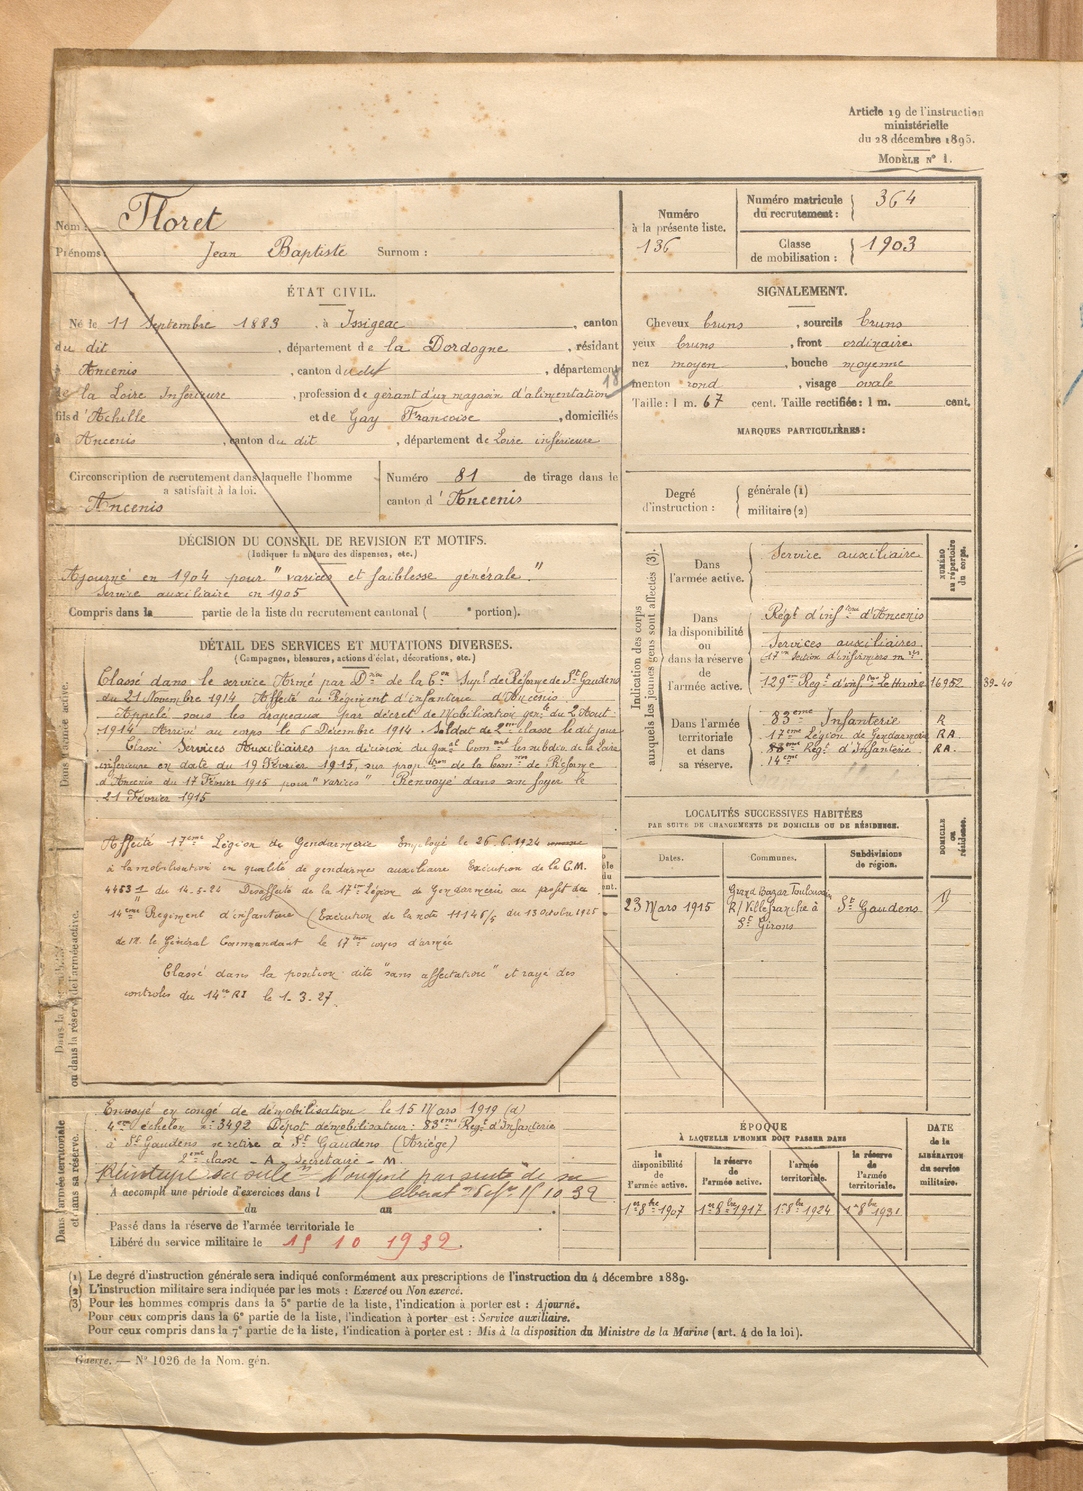 Article 19 de l'instruction
ministérielle
du 28 décembre 1895.
MODÈLE N° 1.
Nom : Floret
Prénoms : Jean Baptiste Surnom :
Numéro
à la présente liste.
136
Numéro matricule
du recrutement : 364
Classe
de mobilisation : 1903
ÉTAT CIVIL.
Né le 11 Septembre 1883, à Issigeac, canton
du dit, département de la Dordogne, résidant
à Ancenis, canton du dit, département
de la Loire Inférieure, profession de gérant d'un magasin d'alimentation
fils d'Achille et de Gay Francoise, domiciliés
à Ancenis, canton du dit, département de Loire inférieure
SIGNALEMENT.
Cheveux bruns, sourcils bruns
yeux bruns, front ordinaire
nez moyen, bouche moyenne
menton rond, visage ovale
Taille : 1 m. 67 cent. Taille rectifiée : 1 m. cent.
MARQUES PARTICULIÈRES :
Circonscription de recrutement dans laquelle l'homme
a satisfait à la loi.
Ancenis
Numéro 81 de tirage dans le
canton d'Ancenis
Degré
d'instruction :
générale (1)
militaire (2)
DÉCISION DU CONSEIL DE REVISION ET MOTIFS.
(Indiquer la nature des dispenses, etc.)
Ajourné en 1904 pour "varices et faiblesse générale."
Service auxiliaire en 1905
Compris dans la partie de la liste du recrutement cantonal ( ° portion).
DÉTAIL DES SERVICES ET MUTATIONS DIVERSES.
(Campagnes, blessures, actions d'éclat, décorations, etc.)
Dans l'armée active.
Classé dans le service Armé par Don de la Con Sple de Réforme de St Gaudens
du 21 Novembre 1914 Affecté au Régiment d'infanterie d'Ancenis.
Appelé sous les drapeaux par décret de Mobilisation genle du 2 Aout
1914 Arrivé au corps le 6 Décembre 1914. Soldat de 2me classe le dit jour
Classé Services Auxiliaires par décision du Gnal Comant les subdon de la Loire
inférieure en date du 19 Février 1915, sur propon de la Comon de Réforme
d'Ancenis du 17 Février 1915 pour "varices" Renvoyé dans son foyer le
21 Février 1915
Affecté 17eme Légion de Gendarmerie Employé le 26.6.1924
à la mobilisation en qualité de gendarmes auxiliaire Exécution de la C.M.
du 14.5.24 Desaffecté de la 17e Légion de Gendarmerie au profit du
14eme Régiment d'infanterie (Exécution de la note 11146/5 du 13 Octobre 1925
de M. le Général Commandant le 17eme corps d'armée
Classé dans la position dite "sans affectation" et rayé des
controles du 14me RI le 1-3-27.
Dans l'armée territoriale
et dans sa réserve.
Envoyé en congé de démobilisation le 15 Mars 1919 (d)
4eme échelon n° 3492 Dépot démobilisateur : 83eme Regt d'Infanterie
à St Gaudens se retire à St Gaudens (Ariège)
2eme classe - A - Secrétaire - M
A accompli une période d'exercices dans l
du au
Passé dans la réserve de l'armée territoriale le
Libéré du service militaire le 15 10 1932.
Indication des corps
auxquels les jeunes gens sont affectés (3).
NUMÉRO
au répertoire
du corps.
Dans
l'armée active.
Service auxiliaire
Dans
la disponibilité
ou
dans la réserve
de
l'armée active.
Régt d'infrie d'Ancenis
Services auxiliaires
17me Section d'infirmiers mres
129me Regt d'infrie Le Havre 16952 39-40
Dans l'armée
territoriale
et dans
sa réserve.
83eme Infanterie R
17eme Légion de Gendarmerie RA
83eme Regt d'Infanterie RA.
14eme
LOCALITÉS SUCCESSIVES HABITÉES
PAR SUITE DE CHANGEMENTS DE DOMICILE OU DE RÉSIDENCE.
DOMICILE
OU
résidence.
Dates. Communes. Subdivisions
de région.
23 Mars 1915
Grand Bazar Toulousain
R/ Villefranche à
St Girons
St Gaudens
ÉPOQUE
À LAQUELLE L'HOMME DOIT PASSER DANS
la
disponibilité
de
l'armée active.
la réserve
de
l'armée active.
l'armée
territoriale.
la réserve
de
l'armée
territoriale.
DATE
de la
LIBÉRATION
du service
militaire.
1er 8bre 1907 1er 8bre 1917 1er 8bre 1924 1er 8bre 1931
(1) Le degré d'instruction générale sera indiqué conformément aux prescriptions de l'instruction du 4 décembre 1889.
(2) L'instruction militaire sera indiquée par les mots : Exercé ou Non exercé.
(3) Pour les hommes compris dans la 5e partie de la liste, l'indication à porter est : Ajourné.
Pour ceux compris dans la 6e partie de la liste, l'indication à porter est : Service auxiliaire.
Pour ceux compris dans la 7e partie de la liste, l'indication à porter est : Mis à la disposition du Ministre de la Marine (art. 4 de la loi).
Guerre. — N° 1026 de la Nom. gén.